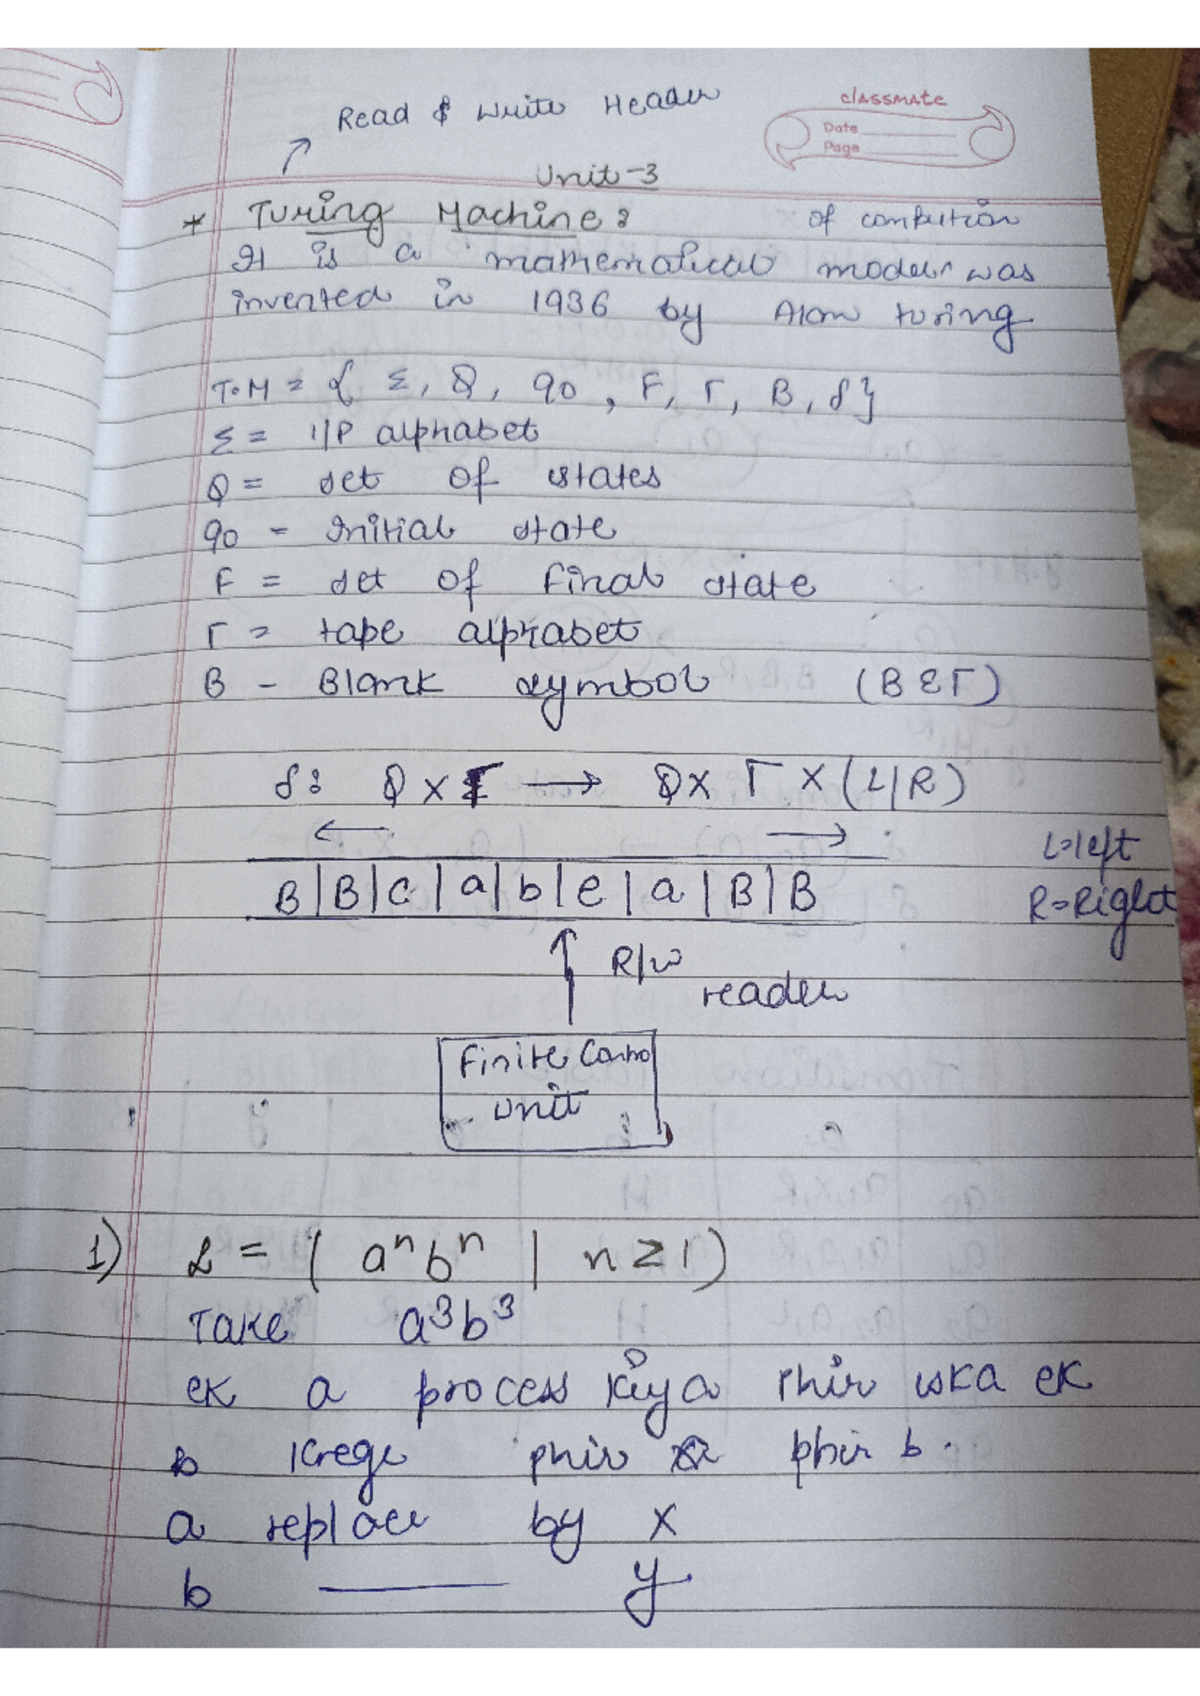 Read & write Header
classmate
Date
Page
Unit-3
* Turing Machine:
of comution
It is a mathematical model was
invented in 1936 by Alan turing
T.M = { Σ, Q, q0, F, Γ, B, δ}
Σ = I/P alphabet
Q = set of states
q0 - Initial state
F = set of Final state
Γ = tape alphabet
B - Blank symbol (B Σ Γ)
δ: Q × Γ → Q × Γ × (L/R)
← →
L=left
B|B|c|a|b|e|a|B|B
R=Right
R/w
reader
Finite Contro
unit
1) L = ( aⁿbⁿ | n ≥ 1)
Take a³b³
ek a process kiya phir uska ek
b krege phir phir b.
a replace by x
b —— y